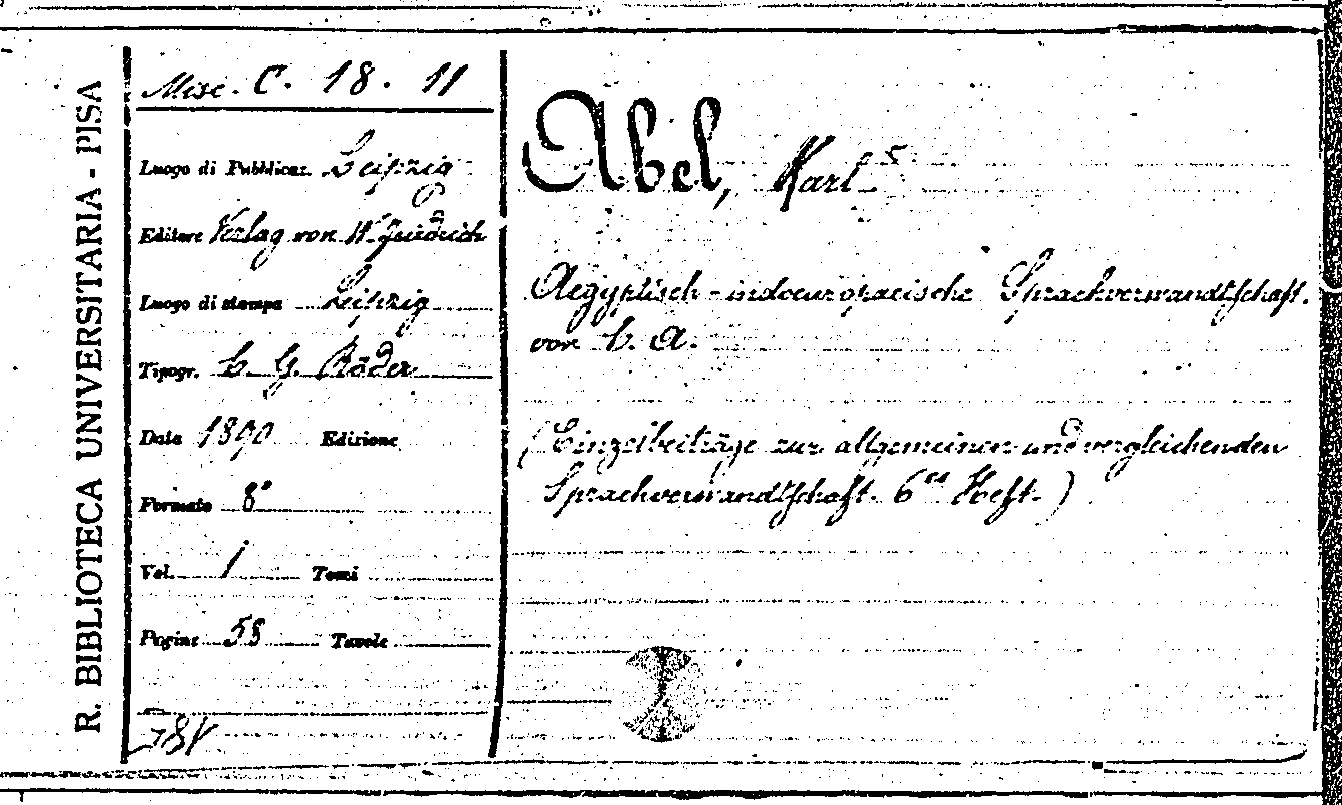 R. BIBLIOTECA UNIVERSITARIA - PISA
Misc. C. 18. 11
Luogo di Pubblicaz. Leipzig
Editore Verlag von W. Friedrich
Luogo di stampa Leipzig
Tipogr. C. G. Röder
Data 1890 Edizione
Formato 8°
Vol. 1 Tomi
Pagine 58 Tavole
Abel, Karl
Aegyptisch-indoeuropaeische Sprachverwandtschaft.
von C. A.
(Einzelbeiträge zur allgemeinen und vergleichenden
Sprachverwandtschaft. 6tes Heft.)